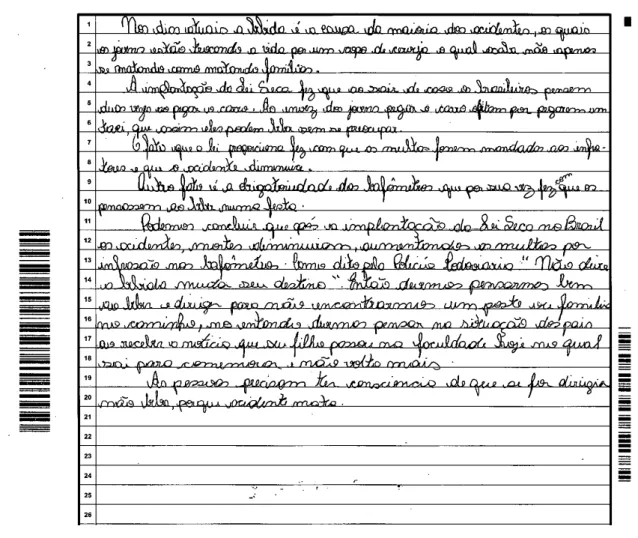 1 Nos dias atuais a bebida é a causa da maioria dos acidentes, os quais
2 os jovens estão trocando a vida por um copo de cerveja o qual acaba não apenas
3 se matando como matando famílias.
4 A implantação da Lei Seca fez que ao sair de casa os brasileiros pensem
5 duas vezes ao pegar o carro. Ao invez dos jovens pegar o carro optam por pegarem um
6 taxi, que assim eles podem beber sem se preocupar.
7 O fato que a lei proporciona fez com que as multas fossem mandados aos infra-
8 tores e que o acidente diminuiu.
9 Outro fato é a obrigatoriedade dos bafômetros que por sua vez fez com que os
10 pensassem ao beber numa festa.
11 Podemos concluir que após a implantação da Lei Seca no Brasil
12 os acidentes, mortes diminuiam, aumentando as multas por
13 infração nos bafômetros. Como dito pela Policia Rodoviaria " Não deixe
14 a bebida muda seu destino " Então devemos pensarmos bem
15 ao beber e dirigir para não encontrarmos um poste ou familia
16 no caminho, no entando devemos pensar na situação dos pais
17 ao receber a noticia que seu filho passou na faculdade hoje no qual
18 sai para comemorar e não volta mais.
19 As pessoas precisam ter consciencia de que se for dirigir
20 não beba, porque acidente mata.
21
22
23
24
25
26